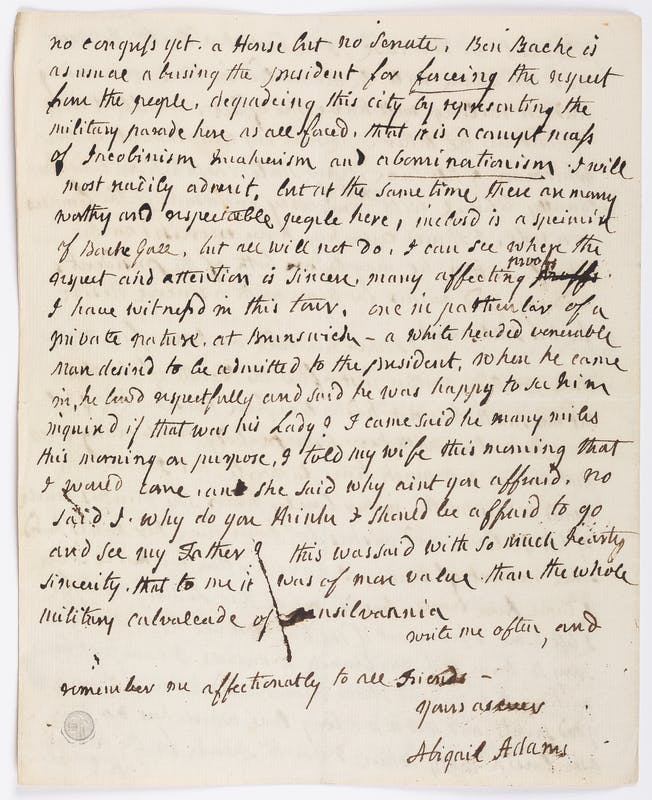 no congress yet. a House but no Senate, Ben Bache is
as usual abusing the president for forceing the respect
from the people, degradeing this city by representing the
military parade here as all forced. that it is a compleat mass
of Jacobinism Quakerism and abominationism. I will
most readily admit, but at the same time there are many
worthy and respectable people here, inclosd is a specimin
of Bache Gall, but all will not do, I can see where the
respect and attention is sincere, many affecting proofs
I have witnessd in this tour. one in particular of a
private nature, at Brunswick – a white headed venerable
Man desired to be admitted to the president, when he came
in, he bowd respectfully and said he was happy to see him
inquired if that was his Lady? I came said he many miles
this morning on purpose, I told my wife this morning that
I would come, and she said why aint you affraid. no
said I. why do you think I should be affraid to go
and see my Father? this was said with so much hearty
sincerity, that to me it was of more value than the whole
military calvalcade of pensilvannia
write me often, and
remember me affectionatly to all Friends –
yours as ever
Abigail Adams